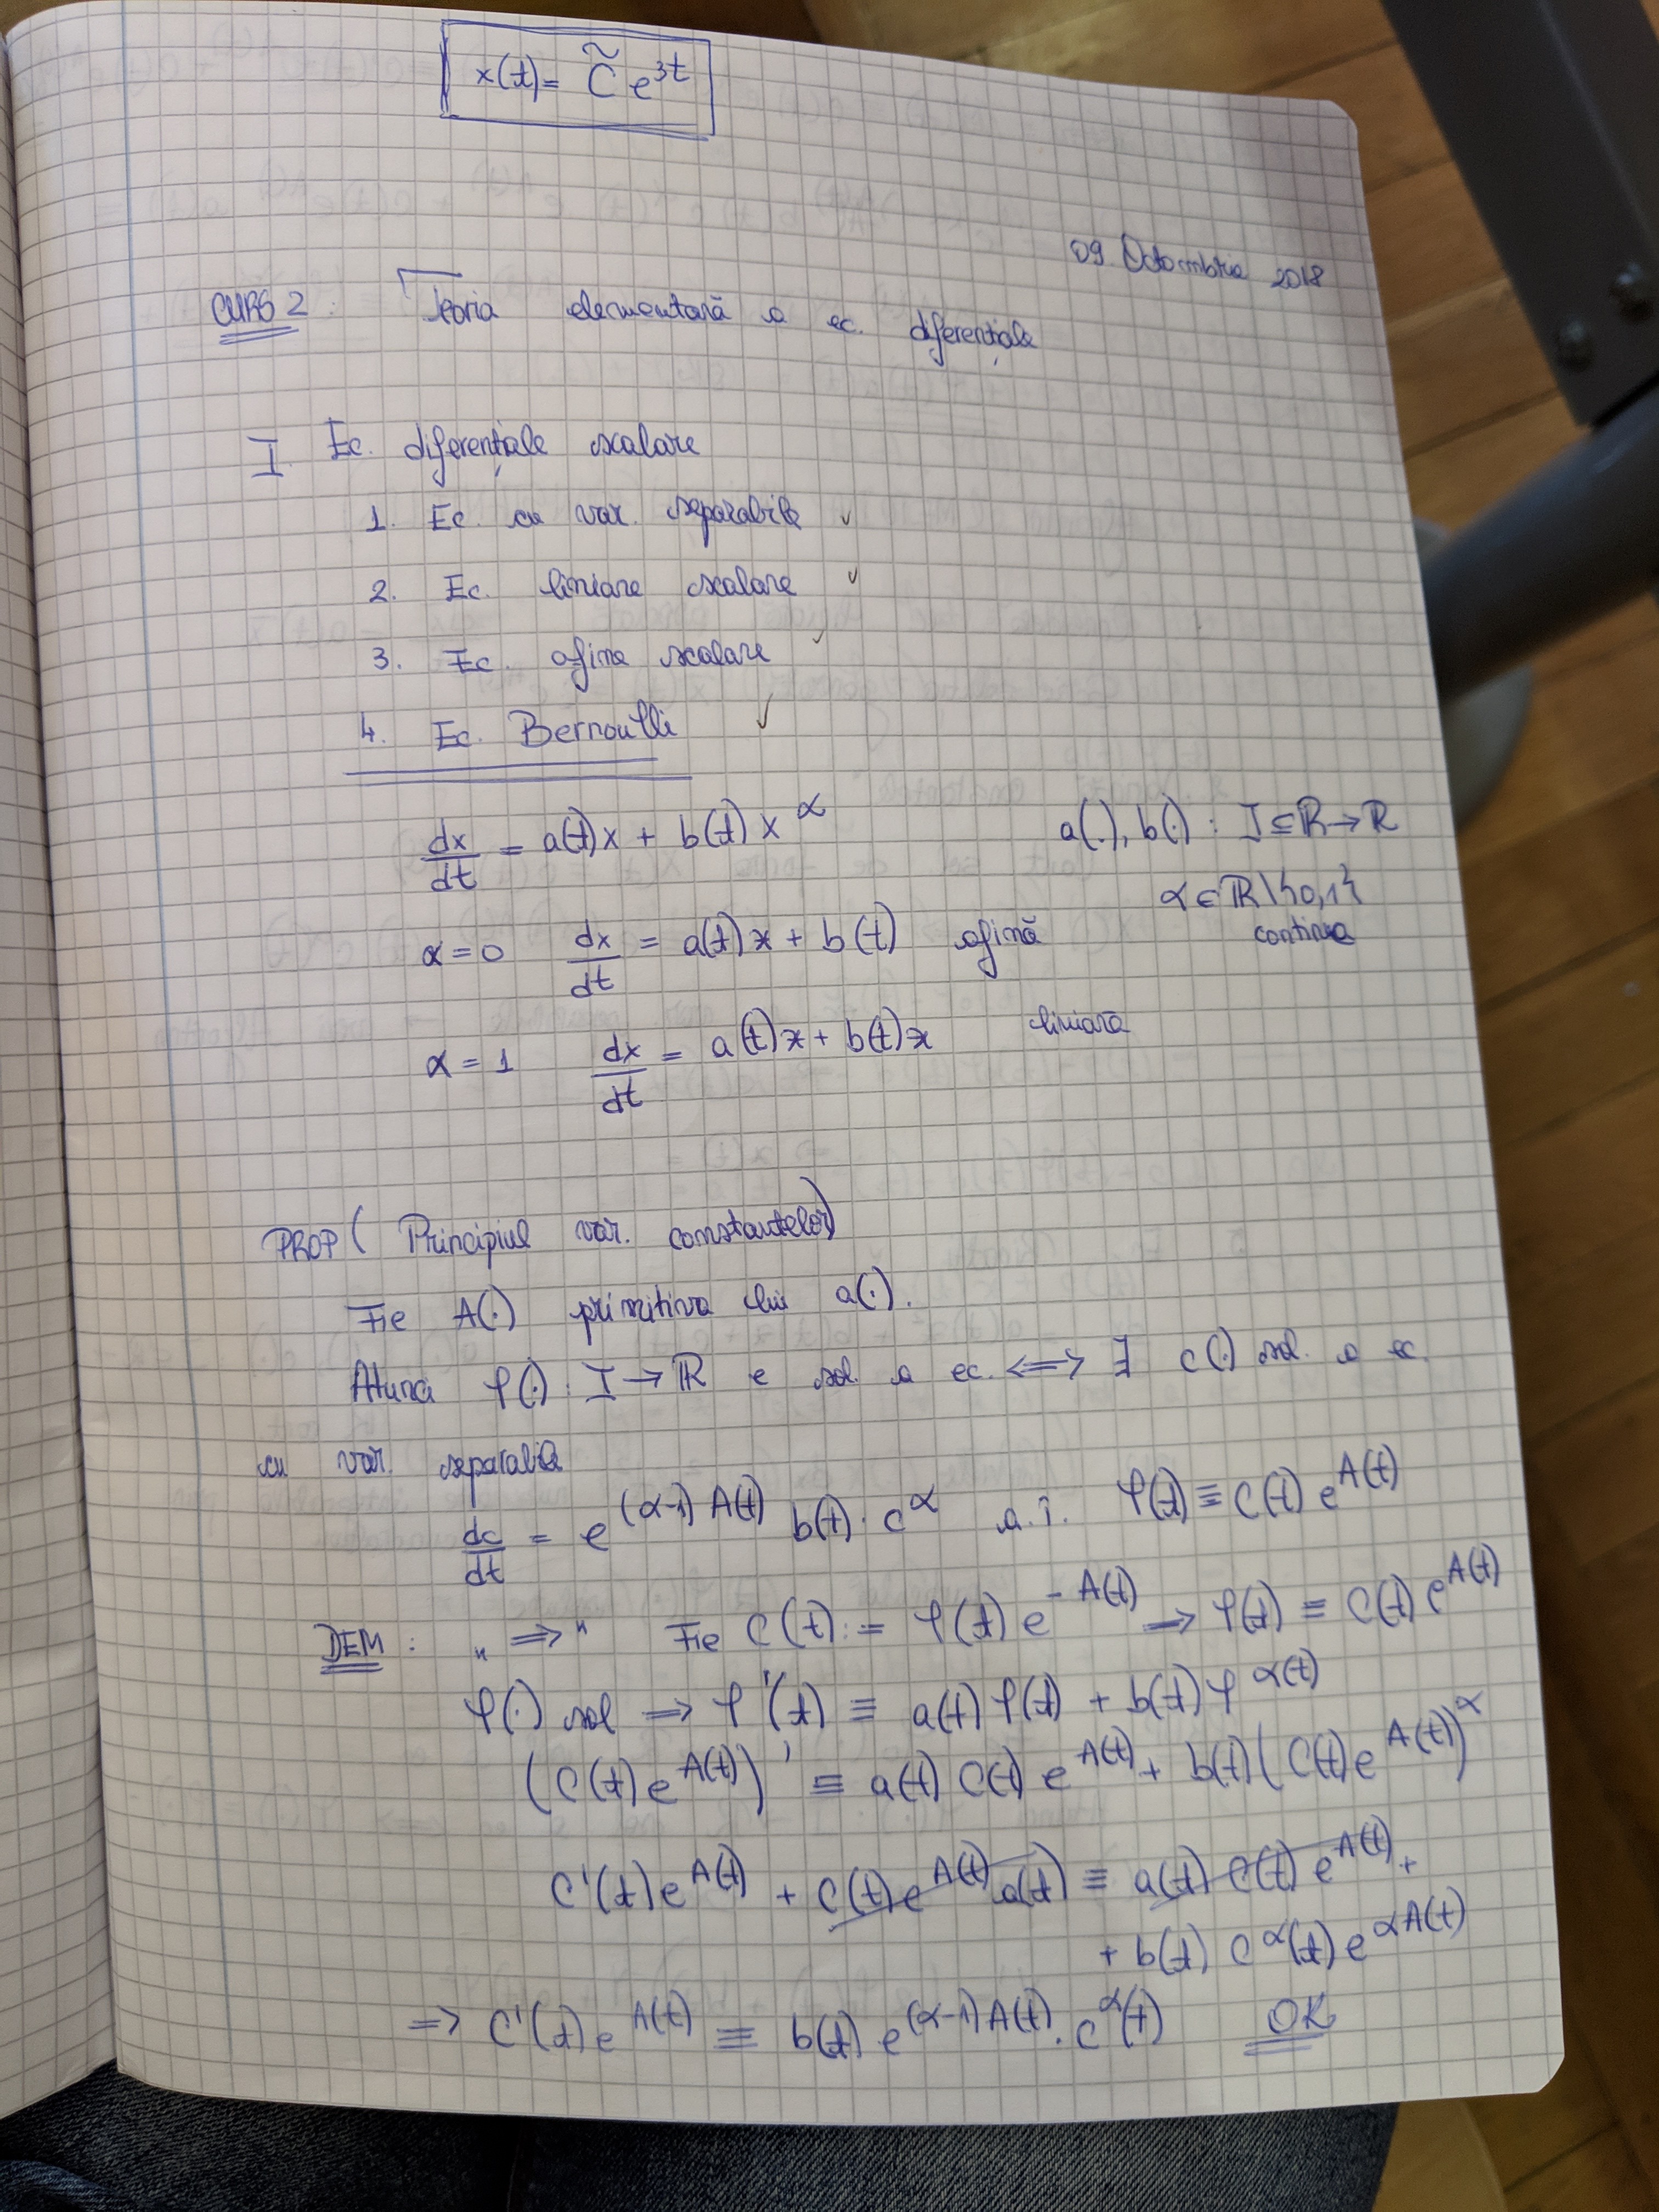 x(t) = C̃ e^{3t}
09 Octombrie 2018
CURS 2 : Teoria elementară a ec. diferențiale
I. Ec. diferențiale scalare
1. Ec. cu var. separabile ✓
2. Ec. liniare scalare ✓
3. Ec. afine scalare ✓
4. Ec. Bernoulli ✓
dx/dt = a(t)x + b(t)x^α a(.), b(.) : I ⊆ ℝ → ℝ
α ∈ ℝ\{0,1}
continue
α = 0 dx/dt = a(t)x + b(t) afină
α = 1 dx/dt = a(t)x + b(t)x liniară
PROP (Principiul var. constantelor)
Fie A(.) primitiva lui a(.).
Atunci φ(.) : I → ℝ e sol. a ec. ⟺ ∃ c(.) sol. a ec.
cu var. separabile
dc/dt = e^{(α-1)A(t)} b(t) · c^α a.î. φ(t) ≡ C(t) e^{A(t)}
DEM : „⟹" Fie C(t) := φ(t) e^{-A(t)} ⟹ φ(t) ≡ C(t) e^{A(t)}
φ(.) sol ⟹ φ'(t) ≡ a(t) φ(t) + b(t) φ^{α(t)}
(C(t) e^{A(t)})' ≡ a(t) C(t) e^{A(t)} + b(t) (C(t) e^{A(t)})^α
C'(t) e^{A(t)} + C(t) e^{A(t)} a(t) ≡ a(t) C(t) e^{A(t)} +
+ b(t) C^α(t) e^{αA(t)}
⟹ C'(t) e^{A(t)} ≡ b(t) e^{(α-1)A(t)} · c^α(t) OK